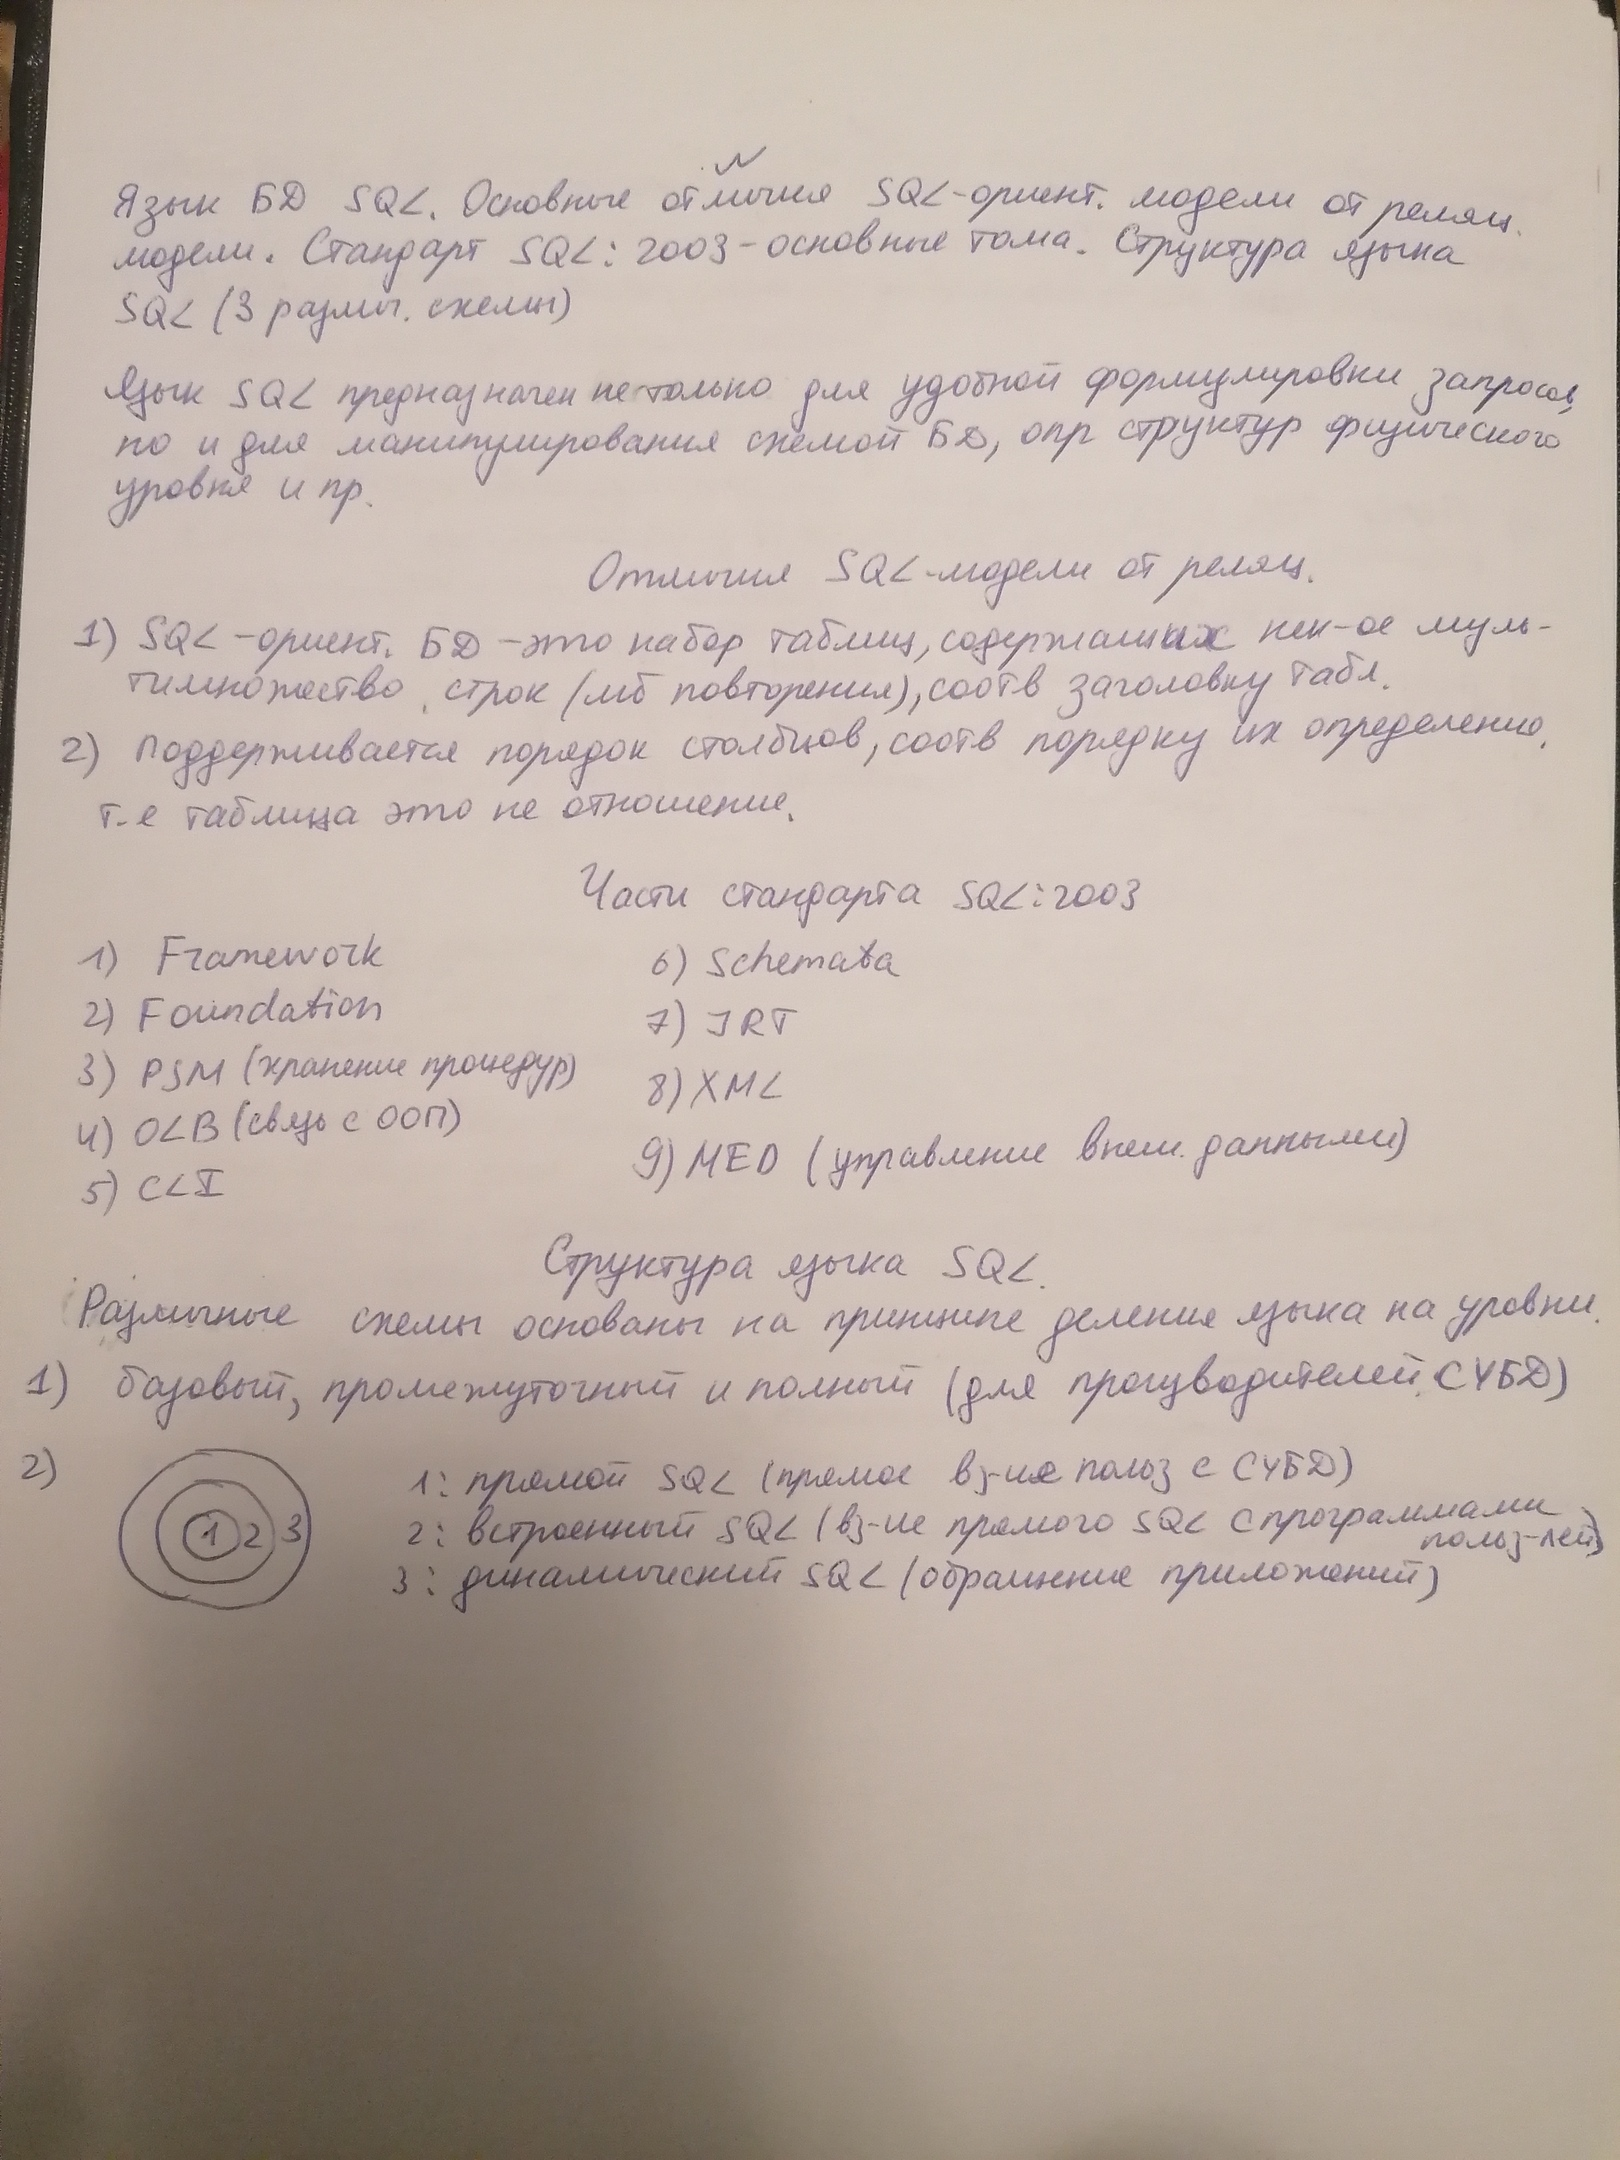 Язык БД SQL. Основные отличия SQL-ориент. модели от реляц.
модели. Стандарт SQL:2003-основные тома. Структура языка
SQL (3 различ. схемы)
Язык SQL предназначен не только для удобной формулировки запросов,
но и для манипулирования схемой БД, опр структур физического
уровня и пр.
Отличия SQL-модели от реляц.
1) SQL-ориент. БД - это набор таблиц, содержащих нек-ое муль-
тимножество строк (мб повторения), соотв заголовку табл.
2) Поддерживается порядок столбцов, соотв порядку их определению.
т.е таблица это не отношение.
Части стандарта SQL:2003
1) Framework
2) Foundation
3) PSM (хранение процедур)
4) OLB (связь с ООП)
5) CLI
6) Schemata
7) JRT
8) XML
9) MED (управление внеш. данными)
Структура языка SQL.
Различные схемы основаны на принципе деления языка на уровни.
1) базовый, промежуточный и полный (для производителей СУБД)
2)
1 2 3
1: прямой SQL (прямое вз-ие польз с СУБД)
2: встроенный SQL (вз-ие прямого SQL с программами
польз-лей)
3: динамический SQL (обращение приложений)